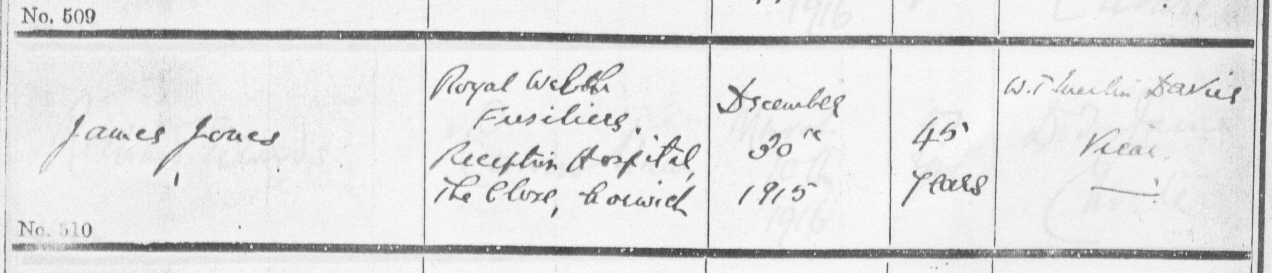 No. 509
James Jones
Royal Welsh
Fusiliers.
Reception Hospital,
The Close, Norwich
December
30th
1915
45
years
W. T. Davies
Vicar.
No. 510